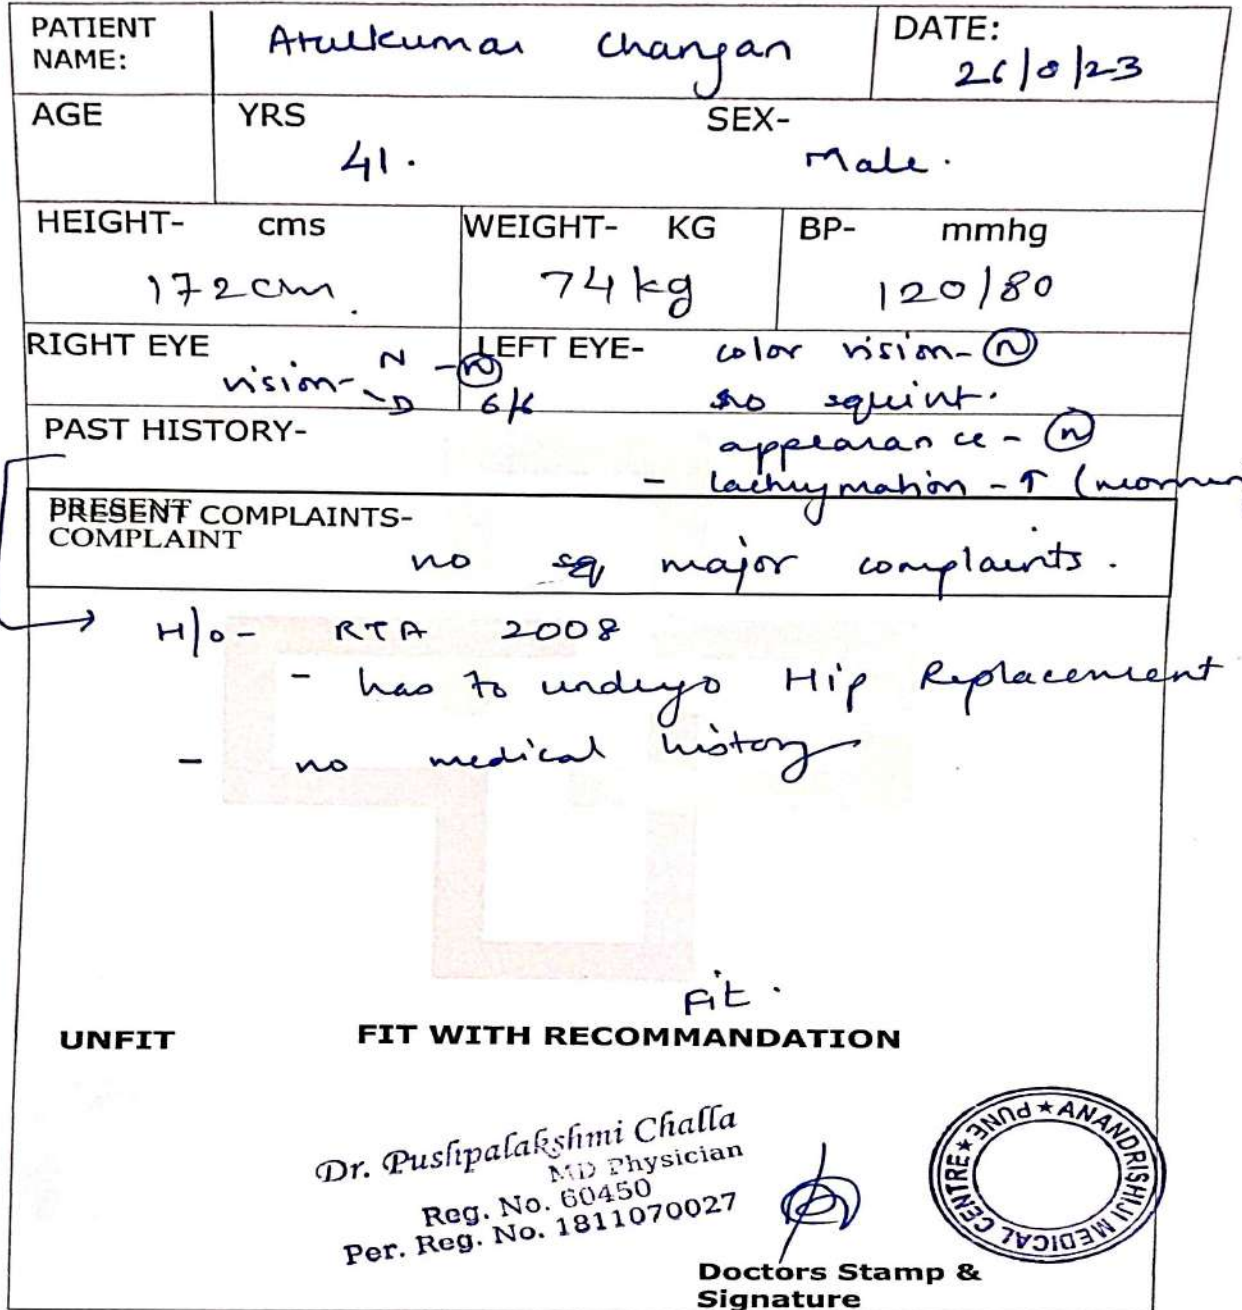 PATIENT NAME: Atulkumar Changan DATE: 26/8/23
AGE YRS 41. SEX- Male.
HEIGHT- cms 172cm. WEIGHT- KG 74 kg BP- mmhg 120/80
RIGHT EYE vision- N - (n) LEFT EYE- color vision- (n)
D 6/6 no squint.
PAST HISTORY- appearance - (n)
- lachrymation - ↑
PRESENT COMPLAINTS-
COMPLAINT
no major complaints.
H/o- RTA 2008
- has to undergo Hip Replacement
- no medical history
Fit.
UNFIT FIT WITH RECOMMANDATION
Dr. Pushpalakshmi Challa
MD Physician
Reg. No. 60450
Per. Reg. No. 1811070027
ANANDRISHIJI MEDICAL CENTRE ★ PUNE ★
Doctors Stamp &
Signature